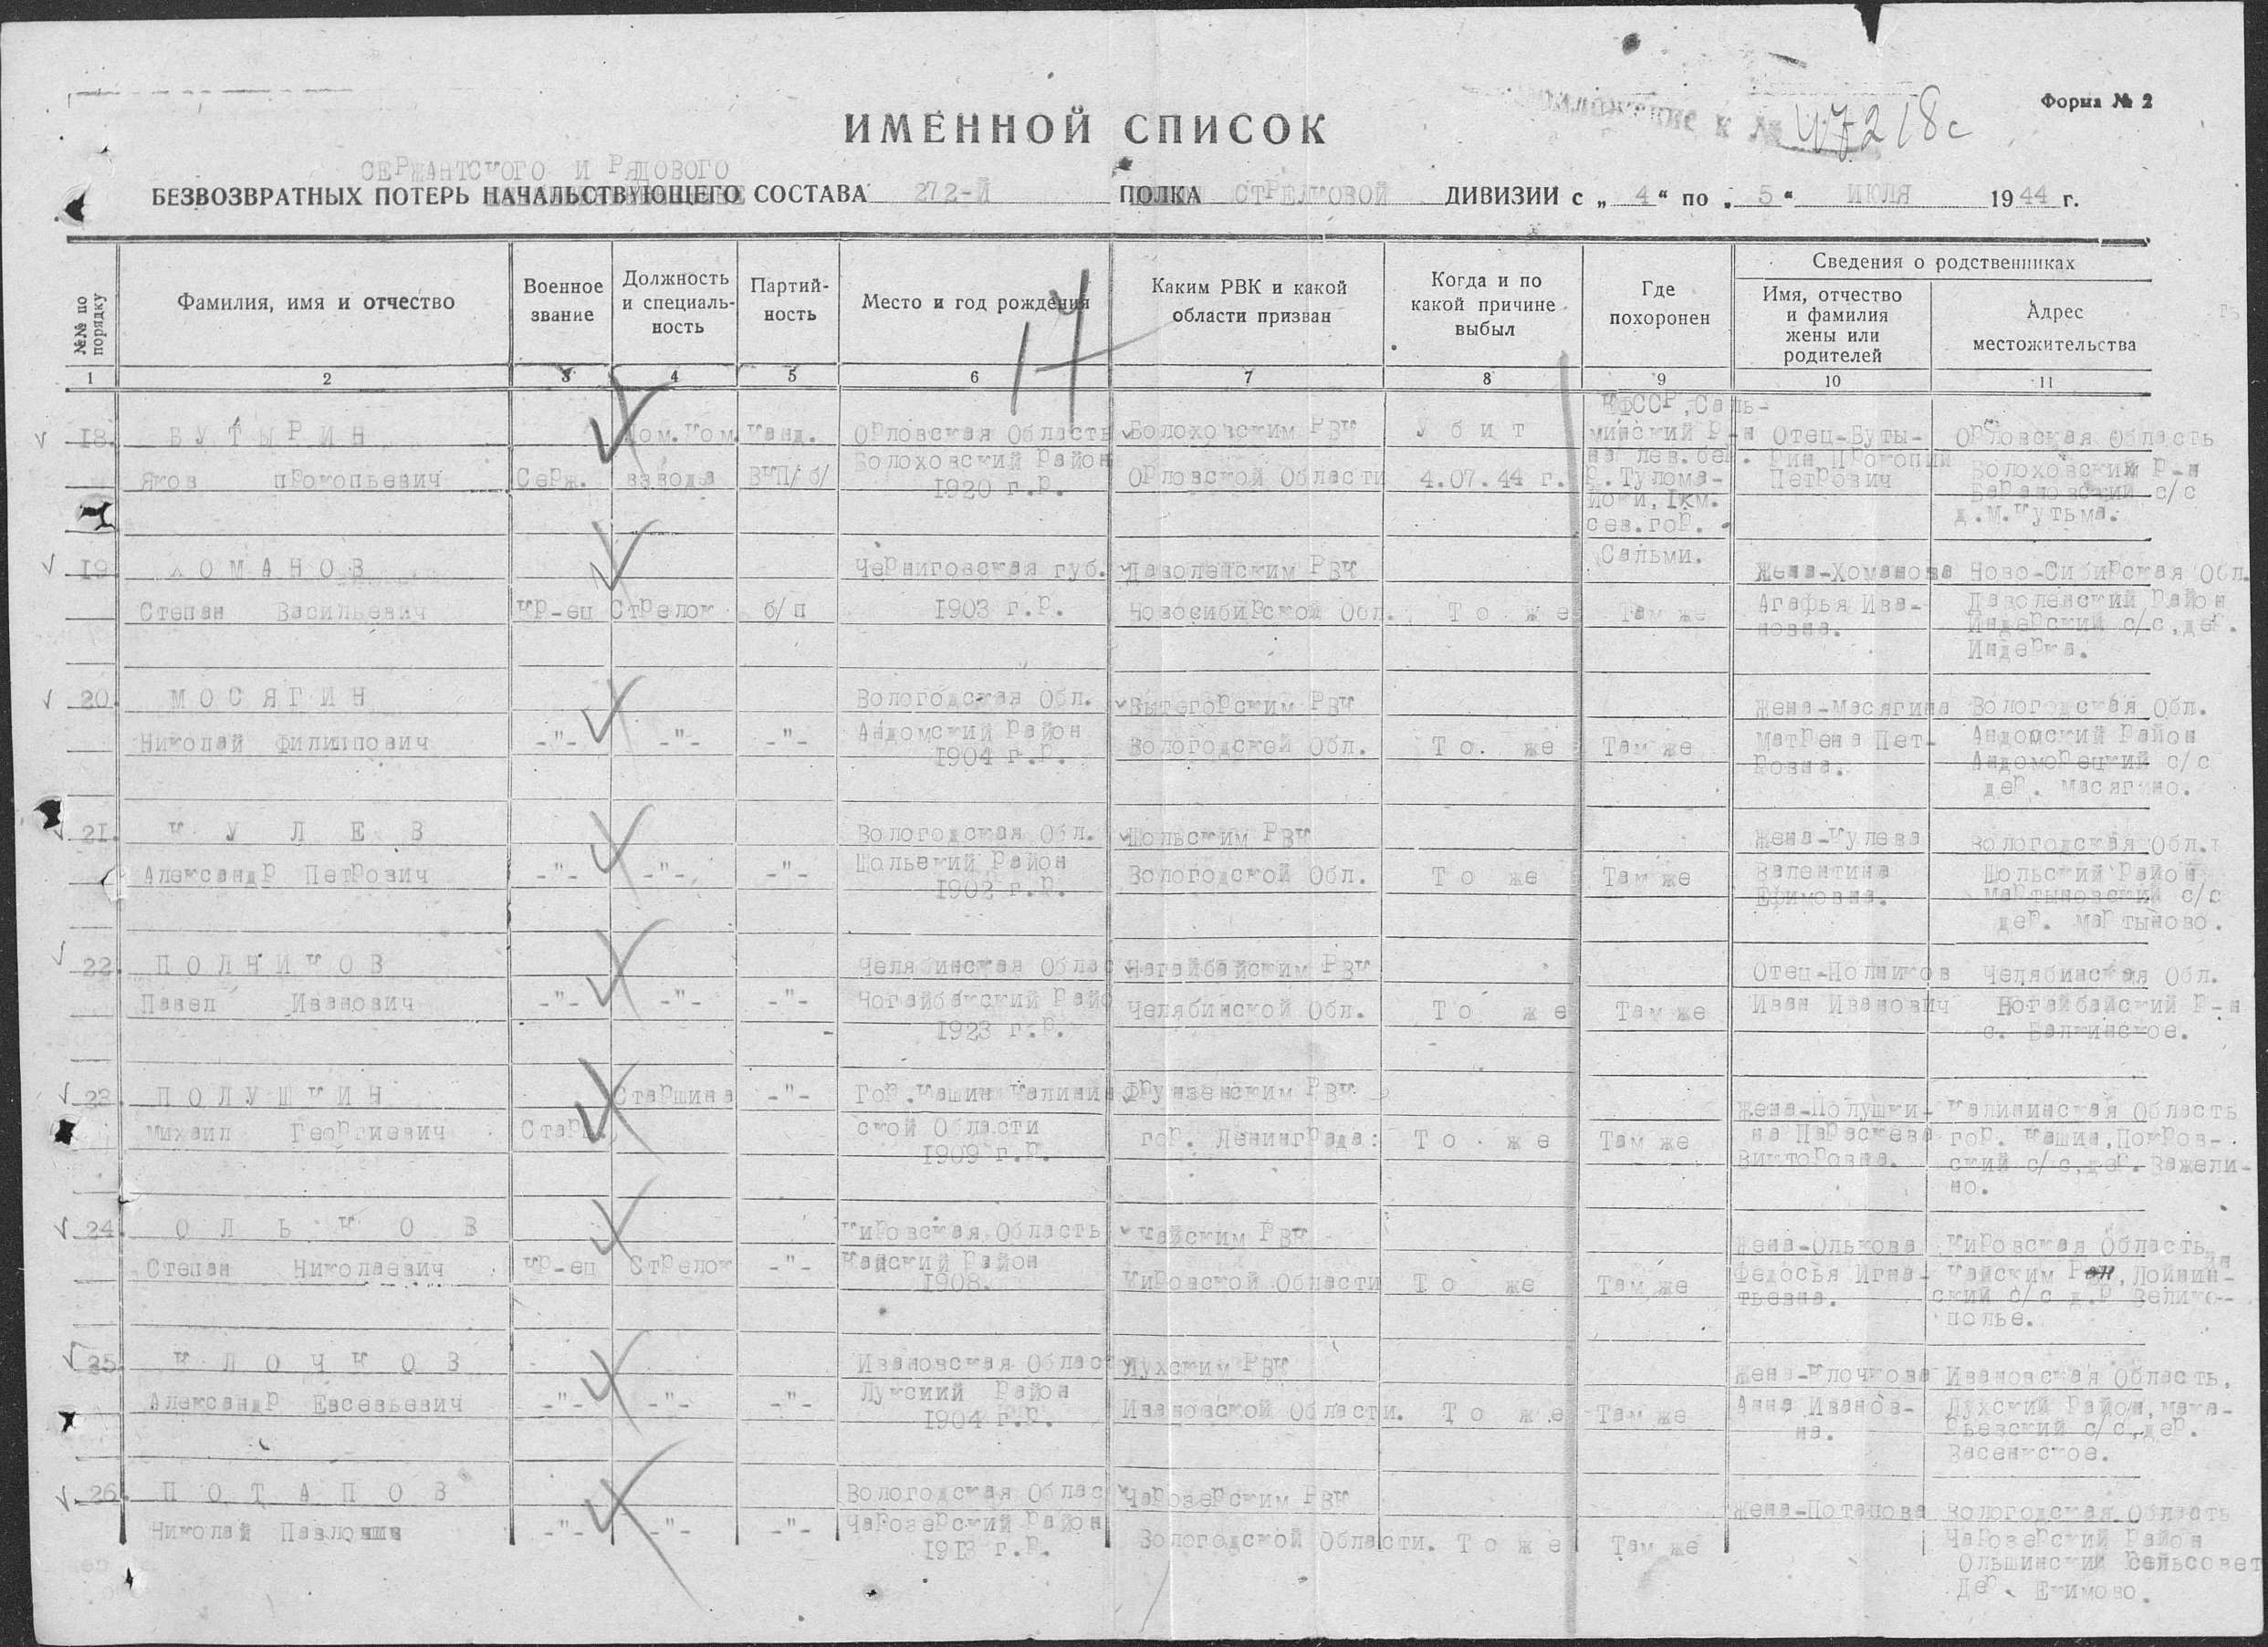 Форма № 2
ИМЕННОЙ СПИСОК
к № 47218с
СЕРЖАНТСКОГО И РЯДОВОГО
БЕЗВОЗВРАТНЫХ ПОТЕРЬ НАЧАЛЬСТВУЮЩЕГО СОСТАВА 272-й ПОЛКА СТРЕЛКОВОЙ ДИВИЗИИ с „ 4 “ по „ 5 “ ИЮЛЯ 1944 г.
14
№№ по порядку
Фамилия, имя и отчество
Военное звание
Должность и специаль-
ность
Партий-
ность
Место и год рождения
Каким РВК и какой
области призван
Когда и по
какой причине
выбыл
Где
похоронен
Сведения о родственниках
Имя, отчество
и фамилия
жены или
родителей
Адрес
местожительства
1 2 3 4 5 6 7 8 9 10 11
18. БУТЫРИН
Яков Прокопьевич
Серж.
Пом.Ком.
взвода
Канд.
ВКП/б/
Орловская Область
Болоховский Район
1920 г.р.
Болоховским РВК
Орловской Области
Убит
4.07.44 г.
КФССР, Саль-
минский Р-н
на лев.бер.
р.Тулома-
йоки, 1км.
сев.гор.
Сальми.
Отец-Буты-
рин Прокопий
Петрович
Орловская Область
Болоховский Р-н
Барановский с/с
д.М.Кутьма.
19. ХОМАНОВ
Степан Васильевич
Кр-ец
Стрелок
б/п
Черниговская губ.
1903 г.р.
Доволенским РВК
Новосибирской Обл.
То же
Там же
Жена-Хоманова
Агафья Ива-
новна.
Ново-Сибирская Обл.
Доволенский Район
Индерский с/с, дер.
Индерка.
20. МОСЯГИН
Николай Филиппович
-"-
-"-
-"-
Вологодская Обл.
Андомский Район
1904 г.р.
Вытегорским РВК
Вологодской Обл.
То же
Там же
Жена-Масягина
Матрена Пет-
ровна.
Вологодская Обл.
Андомский Район
Андоморецкий с/с
дер. Масягино.
21. КУЛЕВ
Александр Петрович
-"-
-"-
-"-
Вологодская Обл.
Шольский Район
1902 г.р.
Шольским РВК
Вологодской Обл.
То же
Там же
Жена-Кулева
Валентина
Ефимовна.
Вологодская Обл.
Шольский Район
Мартыновский с/с
дер. Мартыново.
22. ПОЛНИКОВ
Павел Иванович
-"-
-"-
-"-
Челябинская Облас
Ногайбакский Райо
1923 г.р.
Нагайбайским РВК
Челябинской Обл.
То же
Там же
Отец-Полников
Иван Иванович
Челябинская Обл.
Нотайбайский Р-н
с. Балкинское.
23. ПОЛУШКИН
Михаил Георгиевич
Старш.
Старшина
-"-
Гор.Кашин Калинин
ской Области
1909 г.р.
Фрунзенским РВК
гор. Ленинграда:
То же
Там же
Жена-Полушки-
на Параскева
Викторовна.
Калининская Область
гор. Кашин, Покров-
ский с/с, дер. Важели-
но.
24. ОЛЬКОВ
Степан Николаевич
Кр-ец
Стрелок
-"-
Кировская Область
Кайский Район
1908.
Кайским РВК
Кировской Области
То же
Там же
Жена-Олькова
Федосья Игна-
тьевна.
Кировская Область
Кайским Рай, Лойнин-
ский с/с д.р Велико-
полье.
25. КЛОЧКОВ
Александр Евсевьевич
-"-
-"-
-"-
Ивановская Област
Лухский Район
1904 г.р.
Лухским РВК
Ивановской Области.
То же
Там же
Жена-Клочкова
Анна Иванов-
на.
Ивановская Область.
Лухский Район, Мака-
рьевский с/с, дер.
Васенкское.
26. ПОТАПОВ
Николай Павлович
-"-
-"-
-"-
Вологодская Облас
Чарозерский Район
1913 г.р.
Чарозерским РВК
Вологодской Области.
То же
Там же
Жена-Потапова
Вологодская Область
Чарозерский Район
Ольшинский сельсовет
Дер. Екимово.